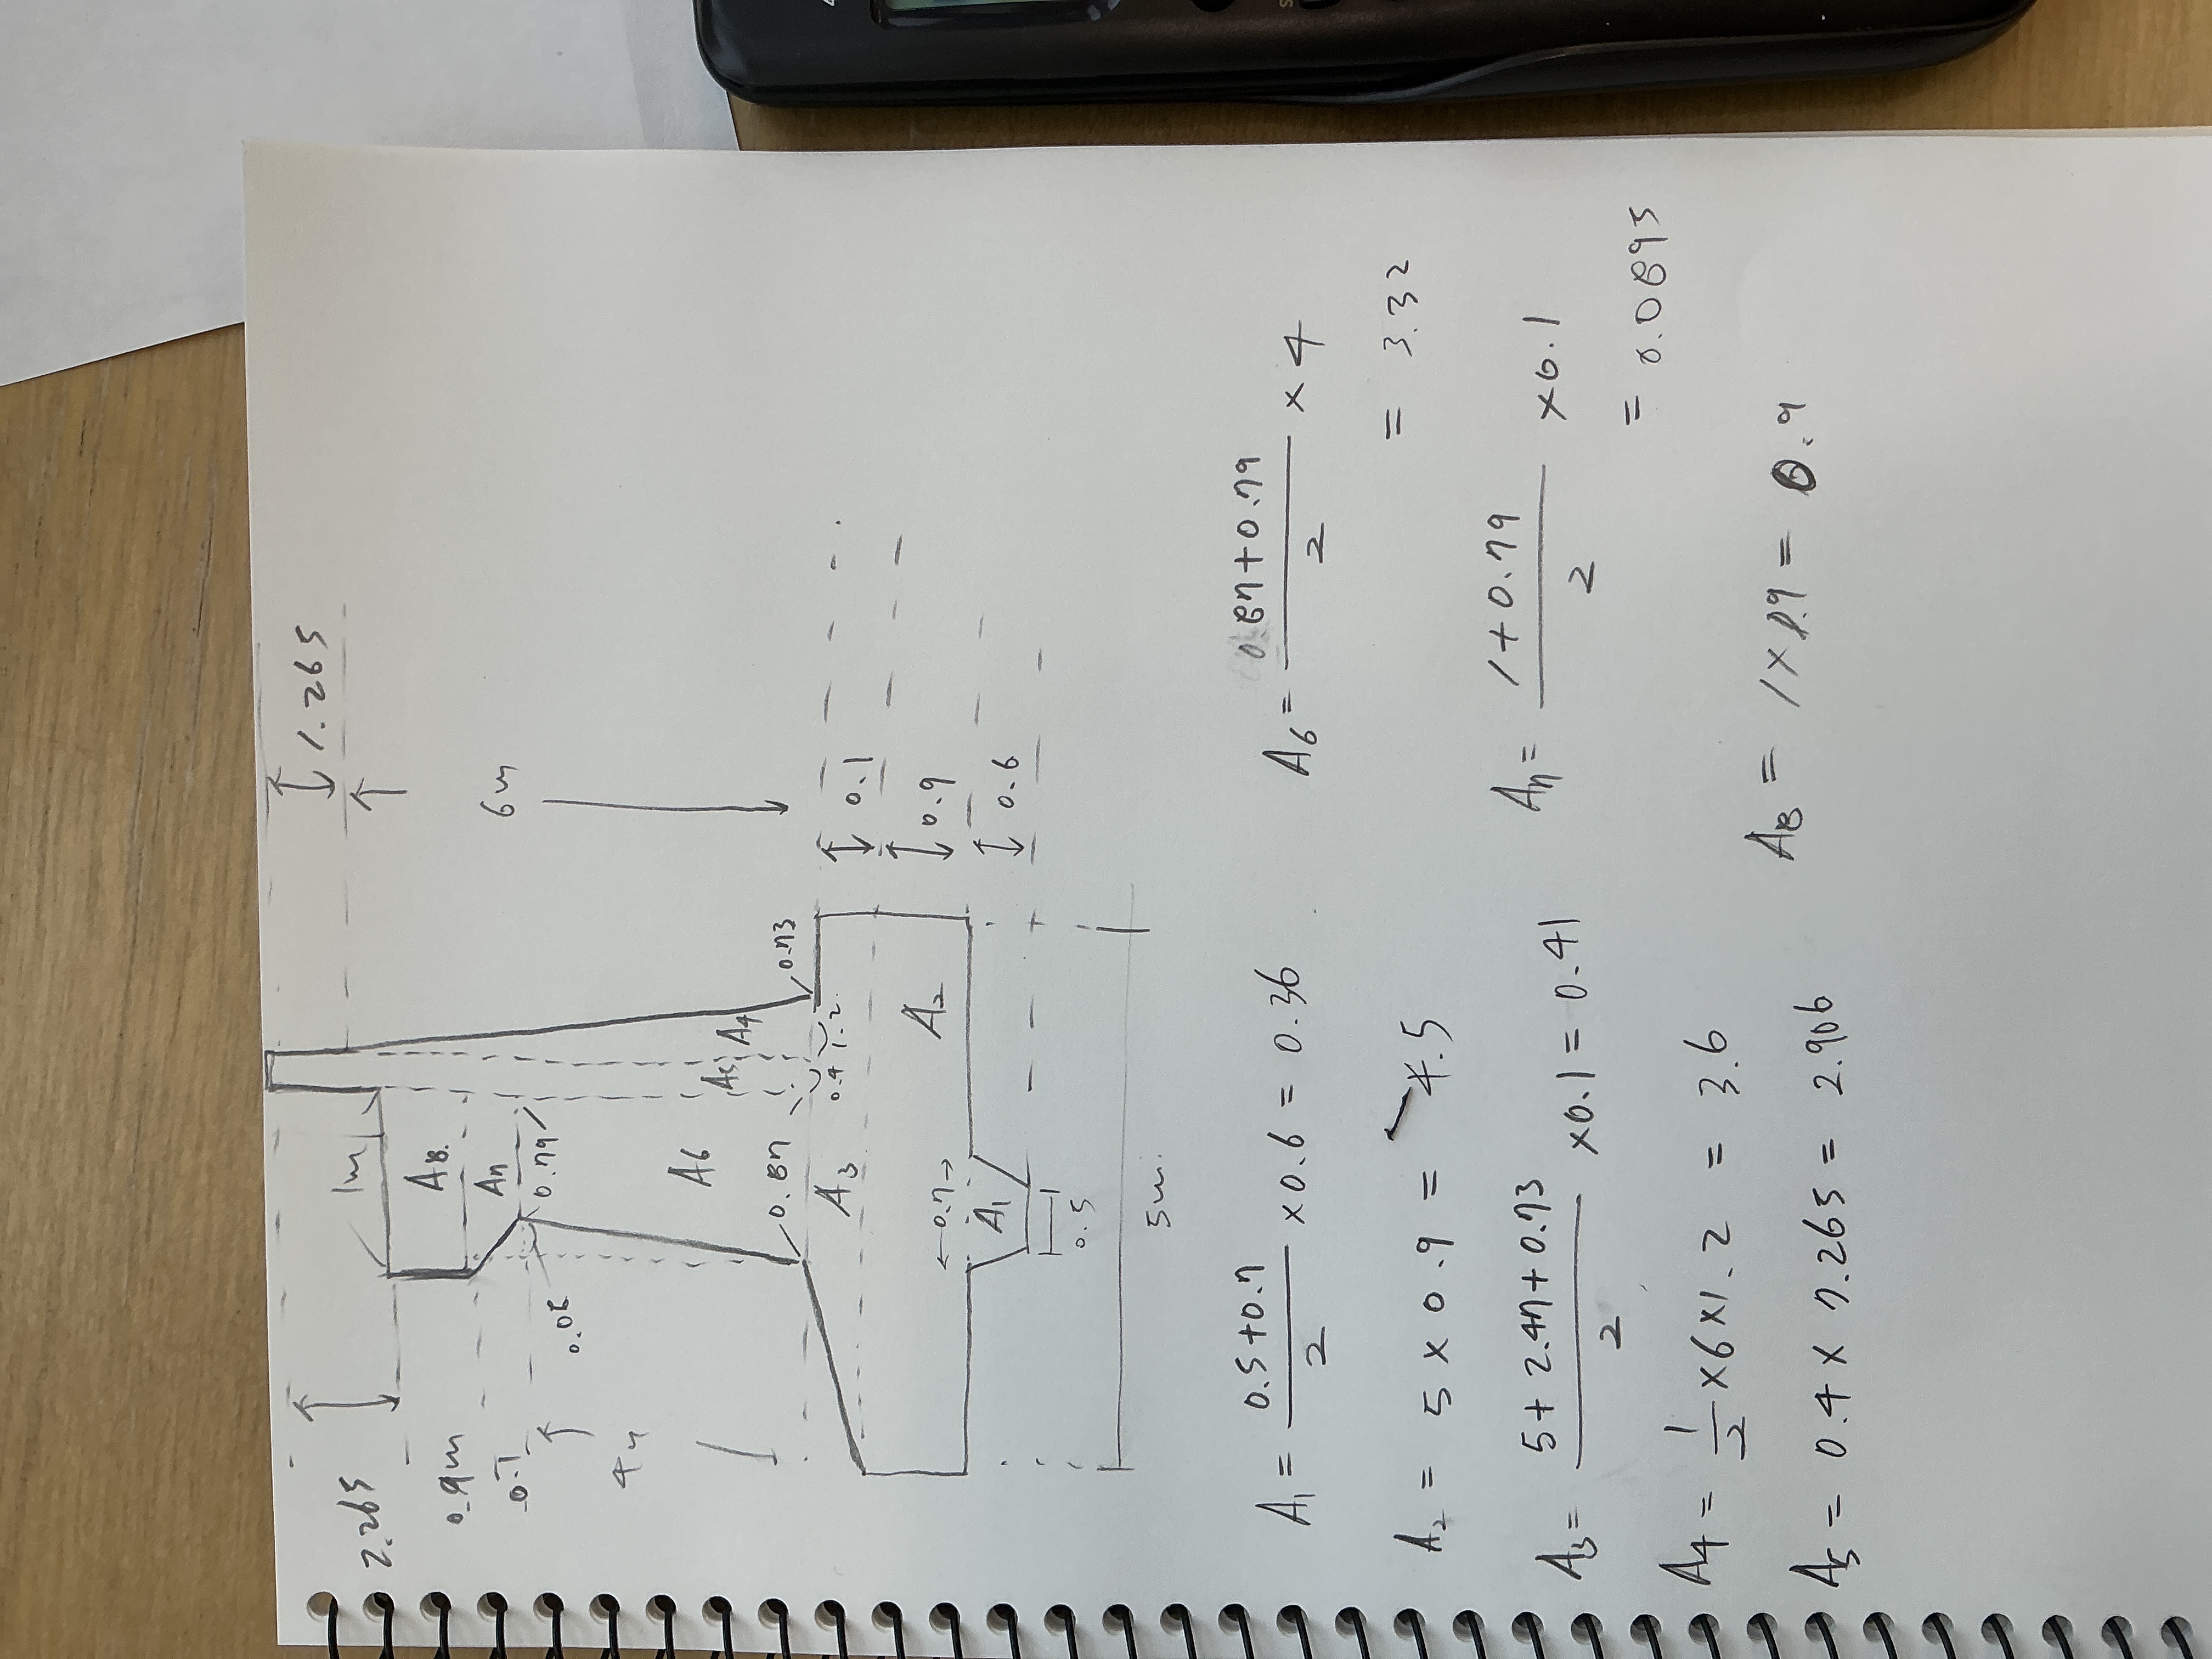 1.265
2.265
1m
6m
0.9m
0.1
A8
A7
0.79
0.08
4m
A6
A5
A4
0.73
0.87
0.4
1.2
0.1
A3
A2
0.9
0.7
A1
0.6
0.5
5m
A1 = (0.5+0.7)/2 ×0.6 = 0.36
A2 = 5 × 0.9 = 4.5
A3 = (5+2.47+0.73)/2 ×0.1 = 0.41
A4 = 1/2 ×6×1.2 = 3.6
A5 = 0.4 × 7.265 = 2.906
A6 = (0.87+0.79)/2 × 4
= 3.32
A7 = (1+0.79)/2 ×0.1
= 0.0895
A8 = 1×0.9 = 0.9